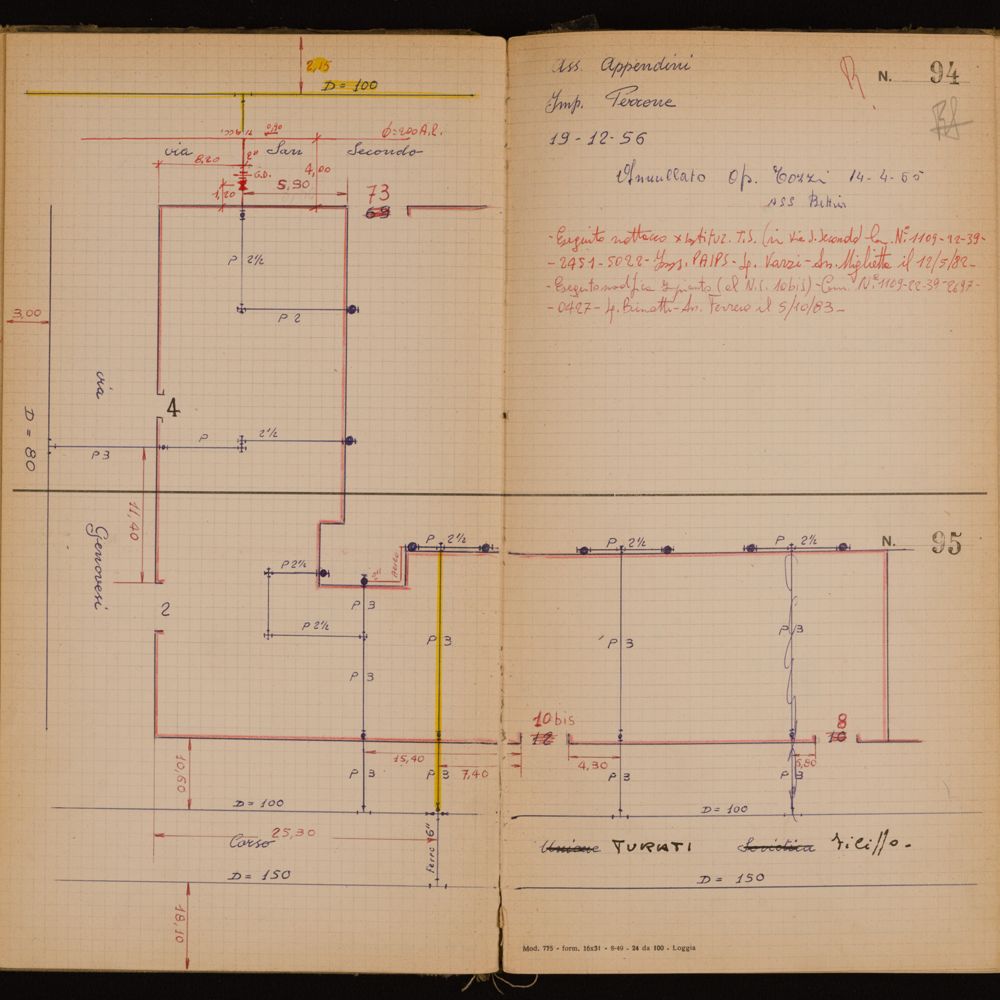 2,15
D = 100
Ø=200 A.C.
via San Secondo
0,90
8,20
2"
G.D.
4,00
1,20
5,90
73
69
P 2½
P 2
3,00
via
4
D = 80
P 2½
P3
11,40
Genovesi
P 2½
P 2½
P 3
P 2½
P 3
2
P 3
15,40
7,40
10,50
P 3
P 3
D = 100
25,30
Corso
Ferro 6"
D = 150
18,10
Ass. Appendini
N. 94
Imp. Perrone
19-12-56
Annullato Op. Tozzi 14-4-65
ASS Bettin
- Eseguito
(in via S. Secondo) N° 1109-22-39-
- 2451-5022- il 12/5/82-
- Eseguito modifica impianto (al N.C. 10bis) - Com. N° 1109-22-39-2697-
- 0427- Ferrero il 5/10/83-
P 2½
P 2½
N. 95
P 3
P 3
10 bis
12
8
10
4,30
5,80
P 3
P 3
D = 100
Unione TURATI Sovietica Filippo.
D = 150
Mod. 775 - form. 16x31 - 8-49 - 24 da 100 - Loggia